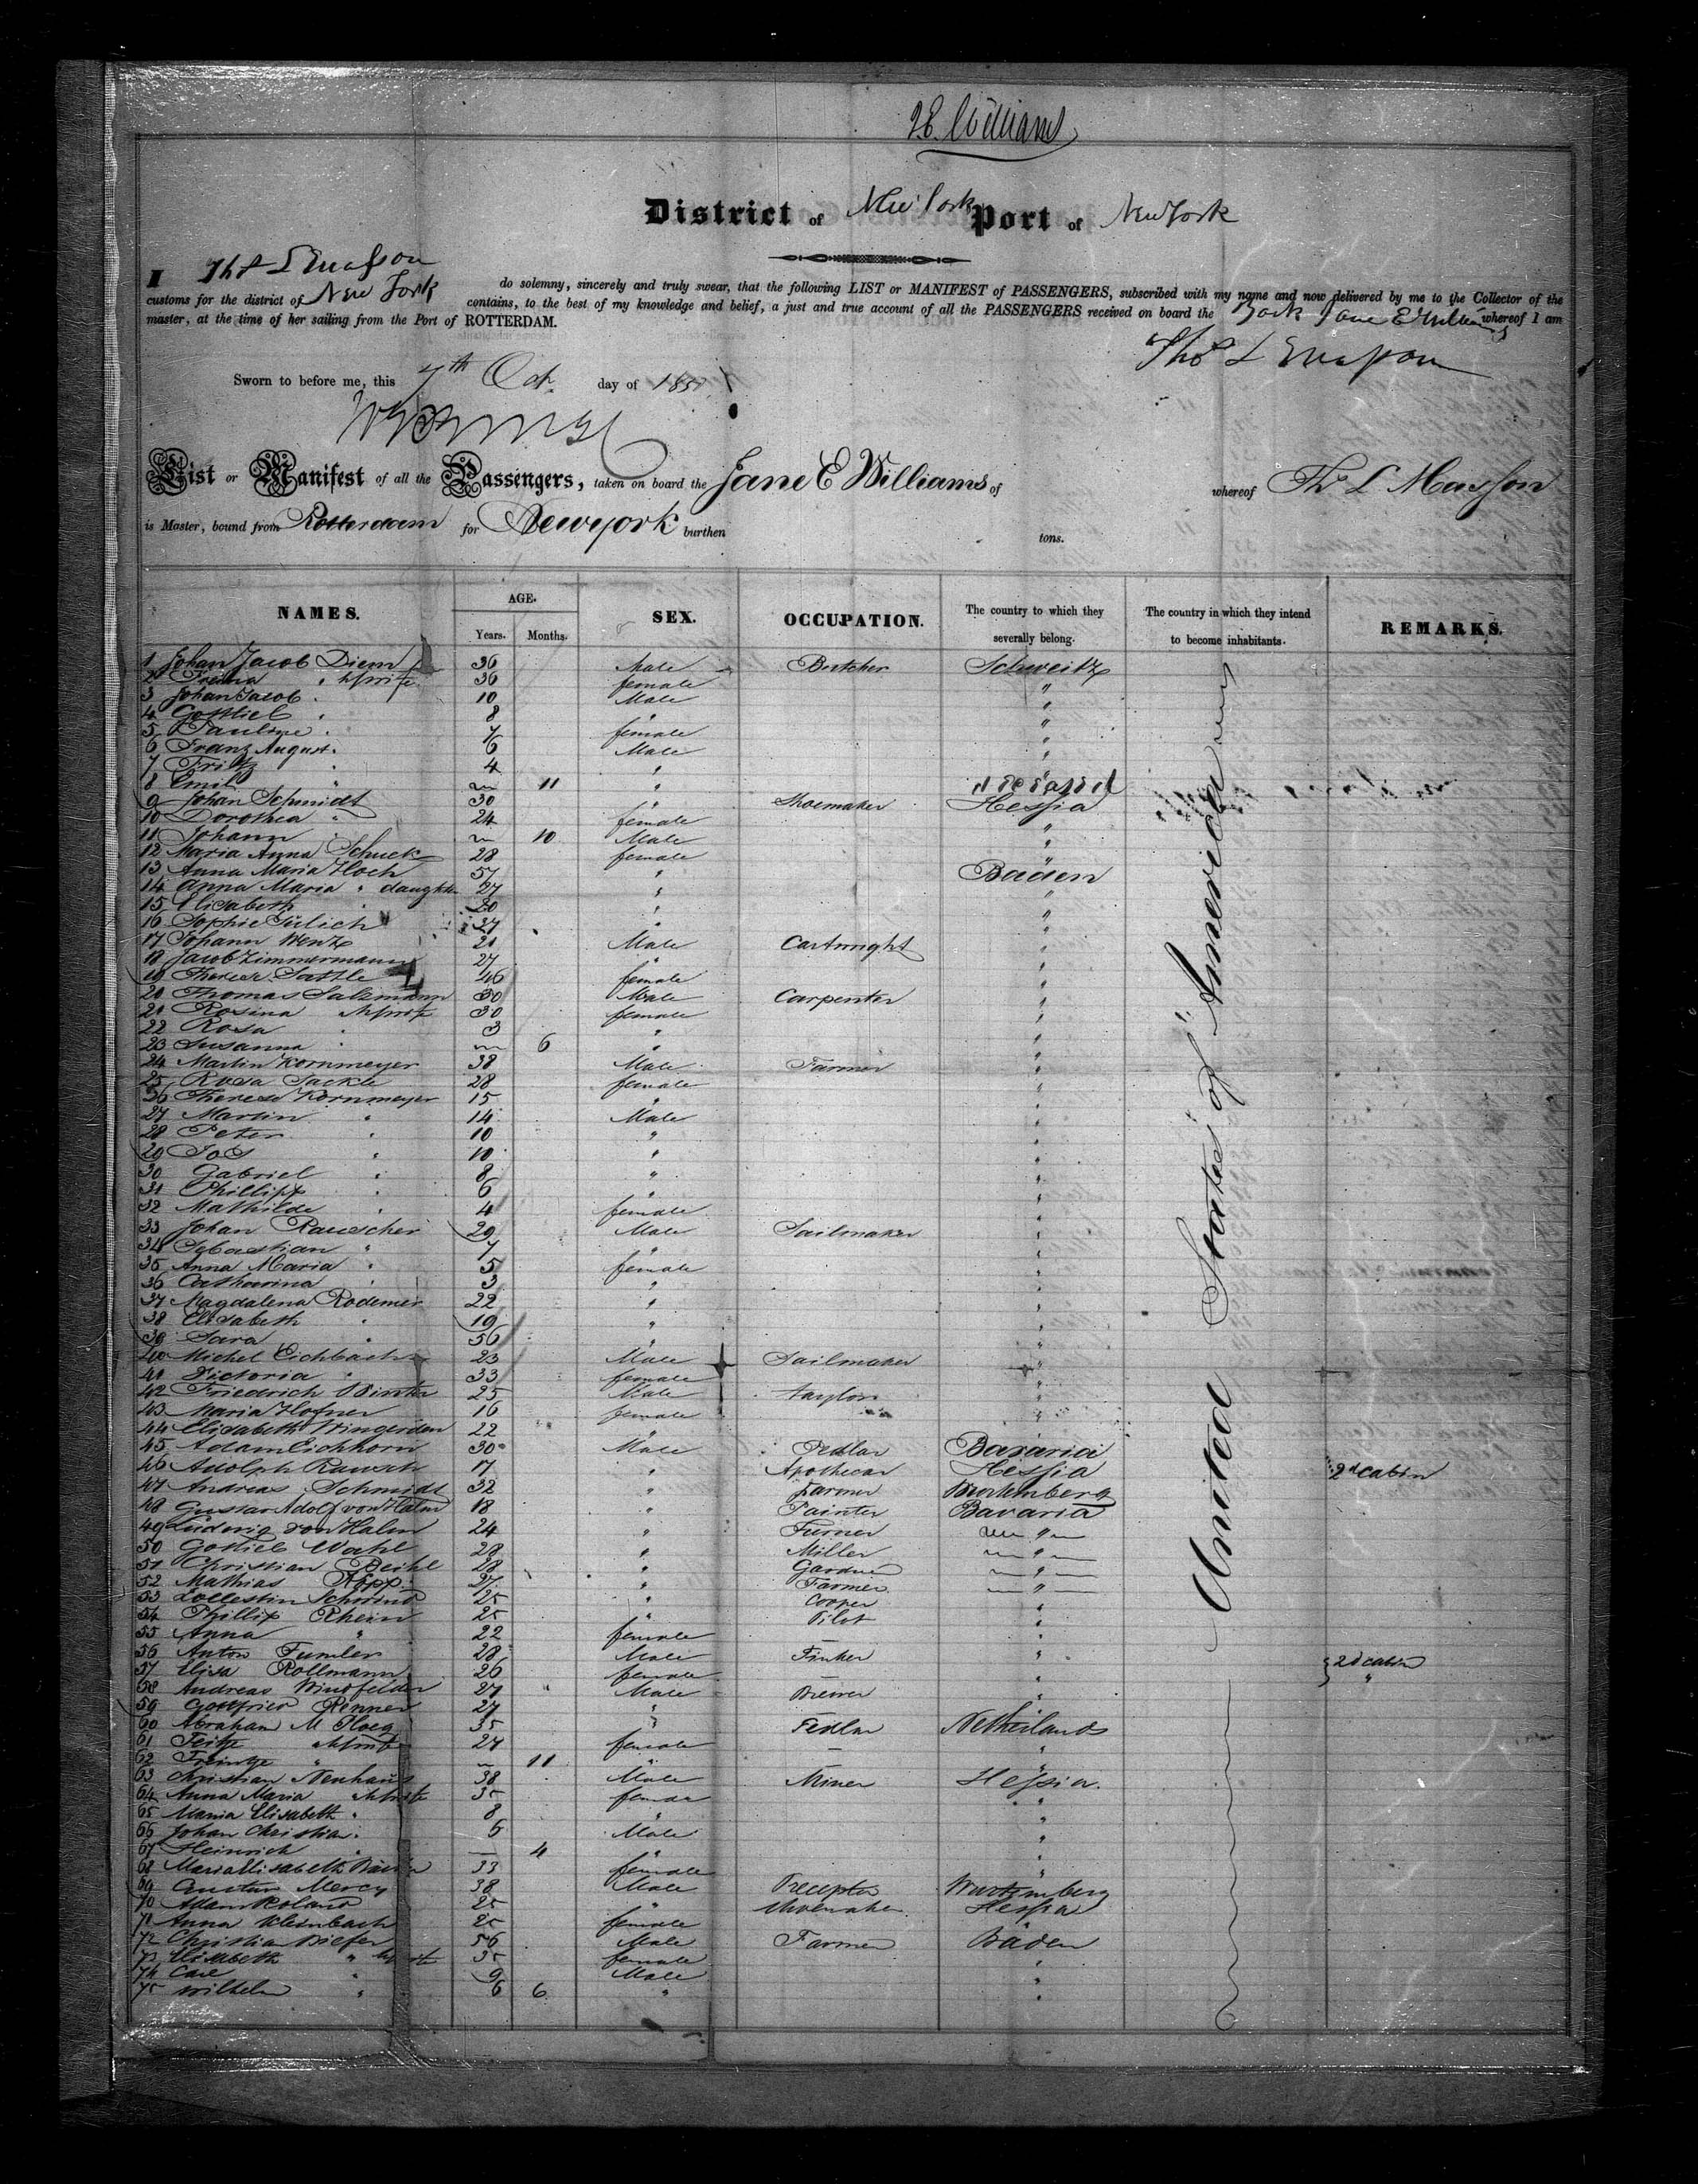 J E Williams
District of New York Port of New York
I Thos L Masson do solemny, sincerely and truly swear, that the following LIST or MANIFEST of PASSENGERS, subscribed with my name and now delivered by me to the Collector of the
customs for the district of New York contains, to the best of my knowledge and belief, a just and true account of all the PASSENGERS received on board the Bark Jane E Williams whereof I am
master, at the time of her sailing from the Port of ROTTERDAM.
Thos L Masson
Sworn to before me, this 7th Oct. day of 185
List or Manifest of all the Passengers, taken on board the Jane E Williams of whereof Th L Masson
is Master, bound from Rotterdam for Newyork burthen tons.
NAMES. AGE. SEX. OCCUPATION. The country to which they severally belong. The country in which they intend to become inhabitants. REMARKS.
Years. Months.
United States of America
1 Johan Jacob Diem 36 Male Butcher Schweitz
2 " 36 female "
3 Johan Jacob " 10 Male "
4 Gottlieb " 8 " "
5 Pauline " 7 female "
6 Franz August " 6 Male "
7 Fritz " 4 " "
8 Emil " 11 "
9 Johan Schmidt 30 " Shoemaker Hessia
10 Dorothea " 24 female "
11 Johann " 10 Male "
12 Maria Anna Schuck 28 female "
13 Anna Maria Hoch 57 " Baden
14 Anna Maria " daughter 27 " "
15 Elisabeth " 20 " "
16 Sophie Julich 37 " "
17 Johann Wentz 21 Male Cartwright "
18 Jacob Zimmermann 27 " "
19 Therese Sattle 46 female "
20 Thomas Salzmann 30 Male Carpenter "
21 Rosina " 30 female "
22 Rosa " 3 " "
23 Susanna " 6 " "
24 Martin Kornmeyer 38 Male Farmer "
25 Rosa Jackle 28 female "
26 Therese Kornmeyer 15 " "
27 Martin " 14 Male "
28 Peter " 10 " "
29 Jos " 10 " "
30 Gabriel " 8 " "
31 Phillipp " 6 " "
32 Mathilde " 4 female "
33 Johan Rauscher 29 Male Sailmaker "
34 Sebastian " 7 " "
35 Anna Maria " 5 female "
36 Catharina " 3 " "
37 Magdalena Rodemer 22 " "
38 Elisabeth " 19 " "
39 Sara " 56 " "
40 Michel Eichbach 23 Male Sailmaker "
41 Victoria " 33 female "
42 Friedrich Winter 25 Male taylor "
43 Maria Hofner 16 female "
44 Elisabeth Wingerden 22
45 Adam Eichhorn 30 Male Pedlar Bavaria
46 Adolph Rausch 17 " Apothecar Hessia 2d cabin
47 Andreas Schmidt 32 " Farmer Wurtemberg
48 Gustav Adolf von Halm 18 " Painter Bavaria
49 Ludwig von Halm 24 " Turner "
50 Gotlieb Wahl 28 " Miller "
51 Christian Beihl 28 " Gardner "
52 Mathias Kopp 27 " Farmer "
53 Collestin Schwind 25 " Cooper "
54 Phillip Rhein 25 " Pilot "
55 Anna " 22 female "
56 Anton Fumler 28 Male "
57 Elisa Rollmann 26 female " 2d cabin
58 Andreas Windfelder 27 Male Brewer " "
59 Gottfried Renner 27 " "
60 Abraham M Ploeg 35 " Pedlar Netherlands
61 " 27 female "
62 " 11 " "
63 Christian Neuhaus 38 Male Miner Hessia.
64 Anna Maria " 35 female "
65 Maria Elisabeth " 8 " "
66 Johan Christian " 6 Male "
67 Heinrich " 4 " "
68 Maria Elisabeth 33 female "
69 Gustav Mercy 38 Male Preceptor Wurtemberg
70 Adam Roland 25 " Shoemaker Hessia
71 Anna Kleinbach 25 female "
72 Christian Biefer 56 Male Farmer Baden
73 Elisabeth " 35 female "
74 Carl " 9 Male "
75 Wilhelm " 6 6 " "